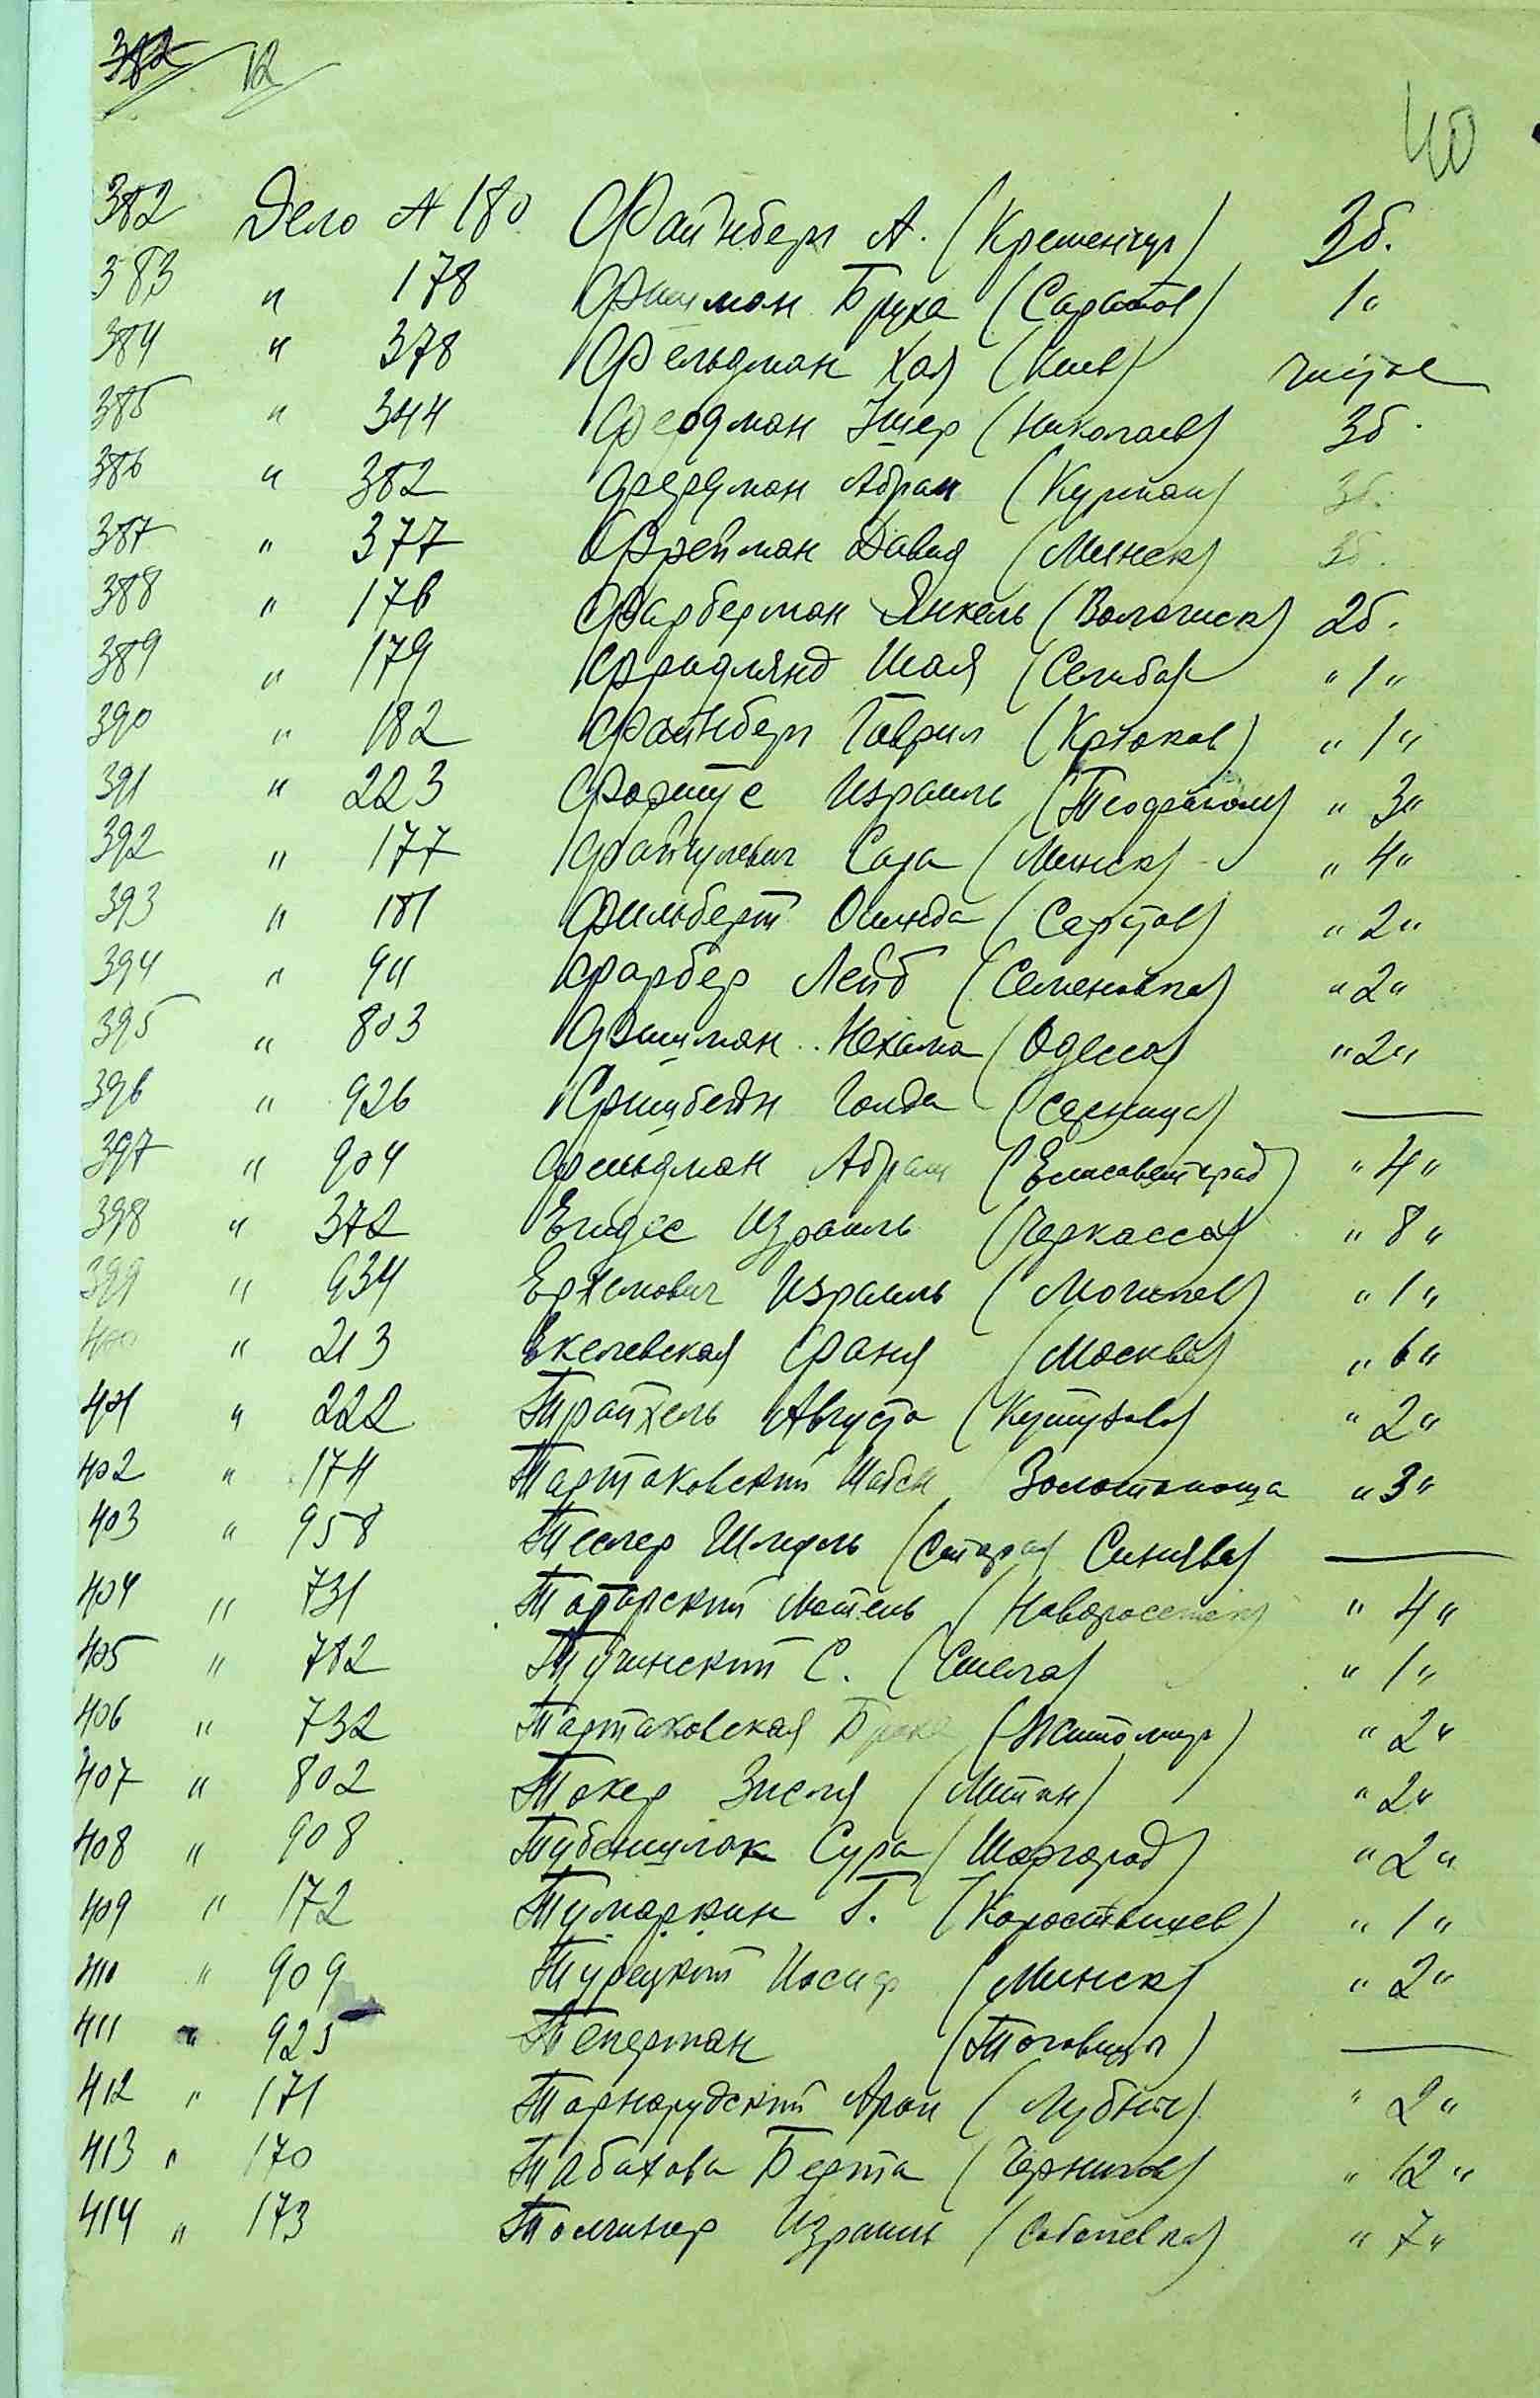 382 12
40
382 Дело № 180 Файнберг А. (Кременчуг) 3б.
383 " 178 Фишман Бруха (Саратов) 1"
384 " 378 Фельдман Хая (Киев)
385 " 344 Фердман Ушер (Николаев) 3б.
386 " 382 Фердман Абрам 3б.
387 " 377 Фрейман Давид (Минск) 3б.
388 " 176 Фарберман Янкель (Волочиск) 2б.
389 " 179 Фридлянд Шая "1"
390 " 182 Файнберг Гаврил (Крюков) "1"
391 " 223 Израиль "3"
392 " 177 Сара (Минск) "4"
393 " 181 Фильберт (Саратов) "2"
394 " 94 Фарбер Лейб (Семеновка) "2"
395 " 803 Фишман Нехама (Одесса) "2"
396 " 926 Голда —
397 " 904 Фельдман Абрам (Елисаветград) "4"
398 " 372 Израиль (Черкассы) "8"
399 " 934 Израиль (Могилев) "1"
400 " 213 Екелевская Фаня (Москва) "6"
401 " 222 Августа "2"
402 " 174 Тартаковский Золотоноша "3"
403 " 958 Теслер (Старая Синява) —
404 " 731 Татарский Мотель (Новороссийск) "4"
405 " 782 Тучинский С. (Смела) "1"
406 " 732 Тартаковская (Житомир) "2"
407 " 802 Токер Зисля "2"
408 " 908 Сура (Шаргород) "2"
409 " 172 Тумаркин Г. (Коростышев) "1"
410 " 909 Турецкий Иосиф (Минск) "2"
411 " 925 Теперман —
412 " 171 Тарнорудский Арон (Лубны) "2"
413 " 170 Табахова Берта (Чернигов) "12"
414 " 173 Толчинер Израиль (Соболевка) "7"